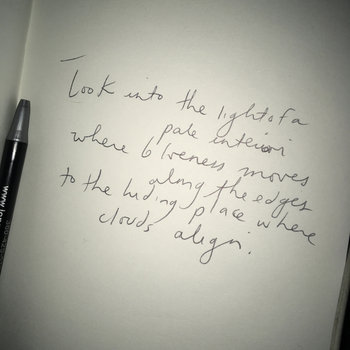 Look into the light of a
pale interior
where blueness moves
along the edges
to the hiding place where
clouds align.
www.